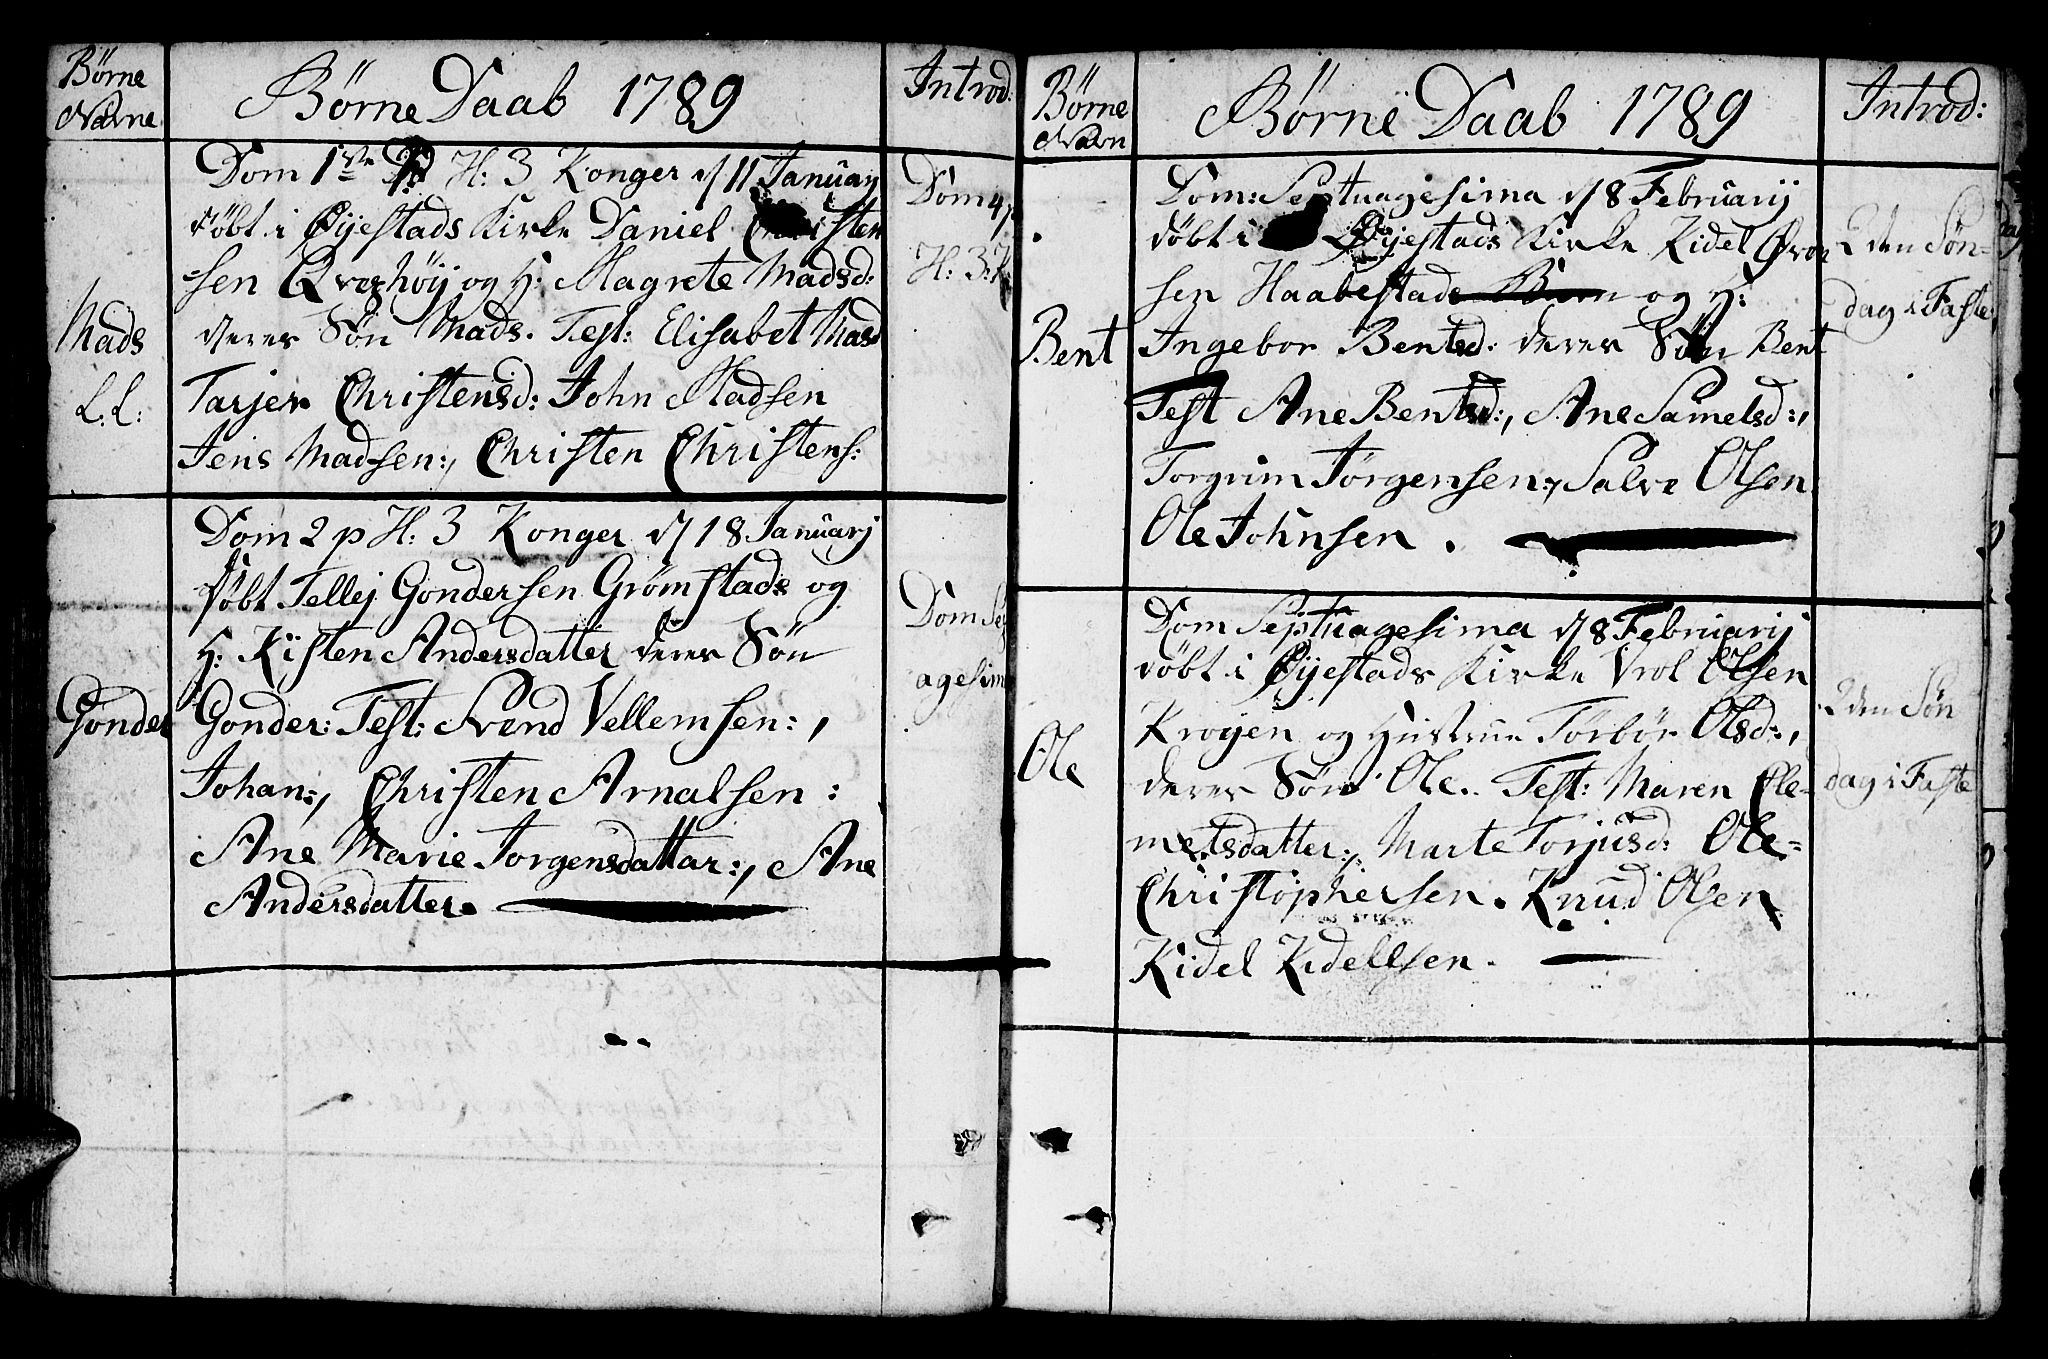 Børne
Navne
Børne Daab 1789
Introd:
Dom 1ste H: 3 Konger d 11 Januarj
døbt i Øijestads Kirke Daniel Christen
sen Qvaghøij og H: Magrete Madsd:
deres Søn Mads. Test: Elisabet Mad
Tarjer Christensd: John Madsen
Jens Madsen:, Christen Christens:
Mads
L.L:
Dom 4 p
H: 3: K
Dom 2 p H: 3 Konger d 18 Januarj
døbt Tellej Gondersen Grømstads og
H: Kisten Andersdatter deres Søn
Gonder: Test: Svend Vellemsen:,
Johan:, Christen Arnalsen:
Ane Marie Jorgensdattar:, Ane
Andersdatter.
Gonder
Dom Sep
agesim
Børne
Navn
Børne Daab 1789
Introd:
Dom: Septuagesima d 8 Februarij
døbt i Øijestads Kirke Kidel
sen Haabestads og H:
Ingebor Bentsd: deres Søn Bent
Test Ane Bentsd:, Ane Samelsd:,
Torgrim Jørgensen:, Salve Olsen
Ole Johnsen.
Bent
2den Søn-
dag i Faste
Dom Septuagesima d 8 Februarij
døbt i Øijestads Kirke Vrol Olsen
Krogen og Hustrue Torbor Olsd:,
deres Søn Ole. Test: Maren Cle-
metsdatter:, Marte Torjusd: Ole-
Christophersen. Knud Olsen
Kidel Kidellsen.
Ole
2den Søn
dag i Faste